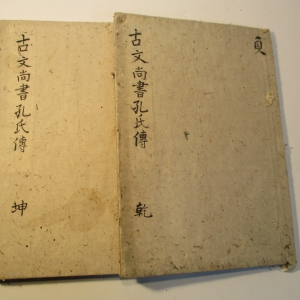 古文尚書孔氏傳 乾
古文尚書孔氏傳 坤